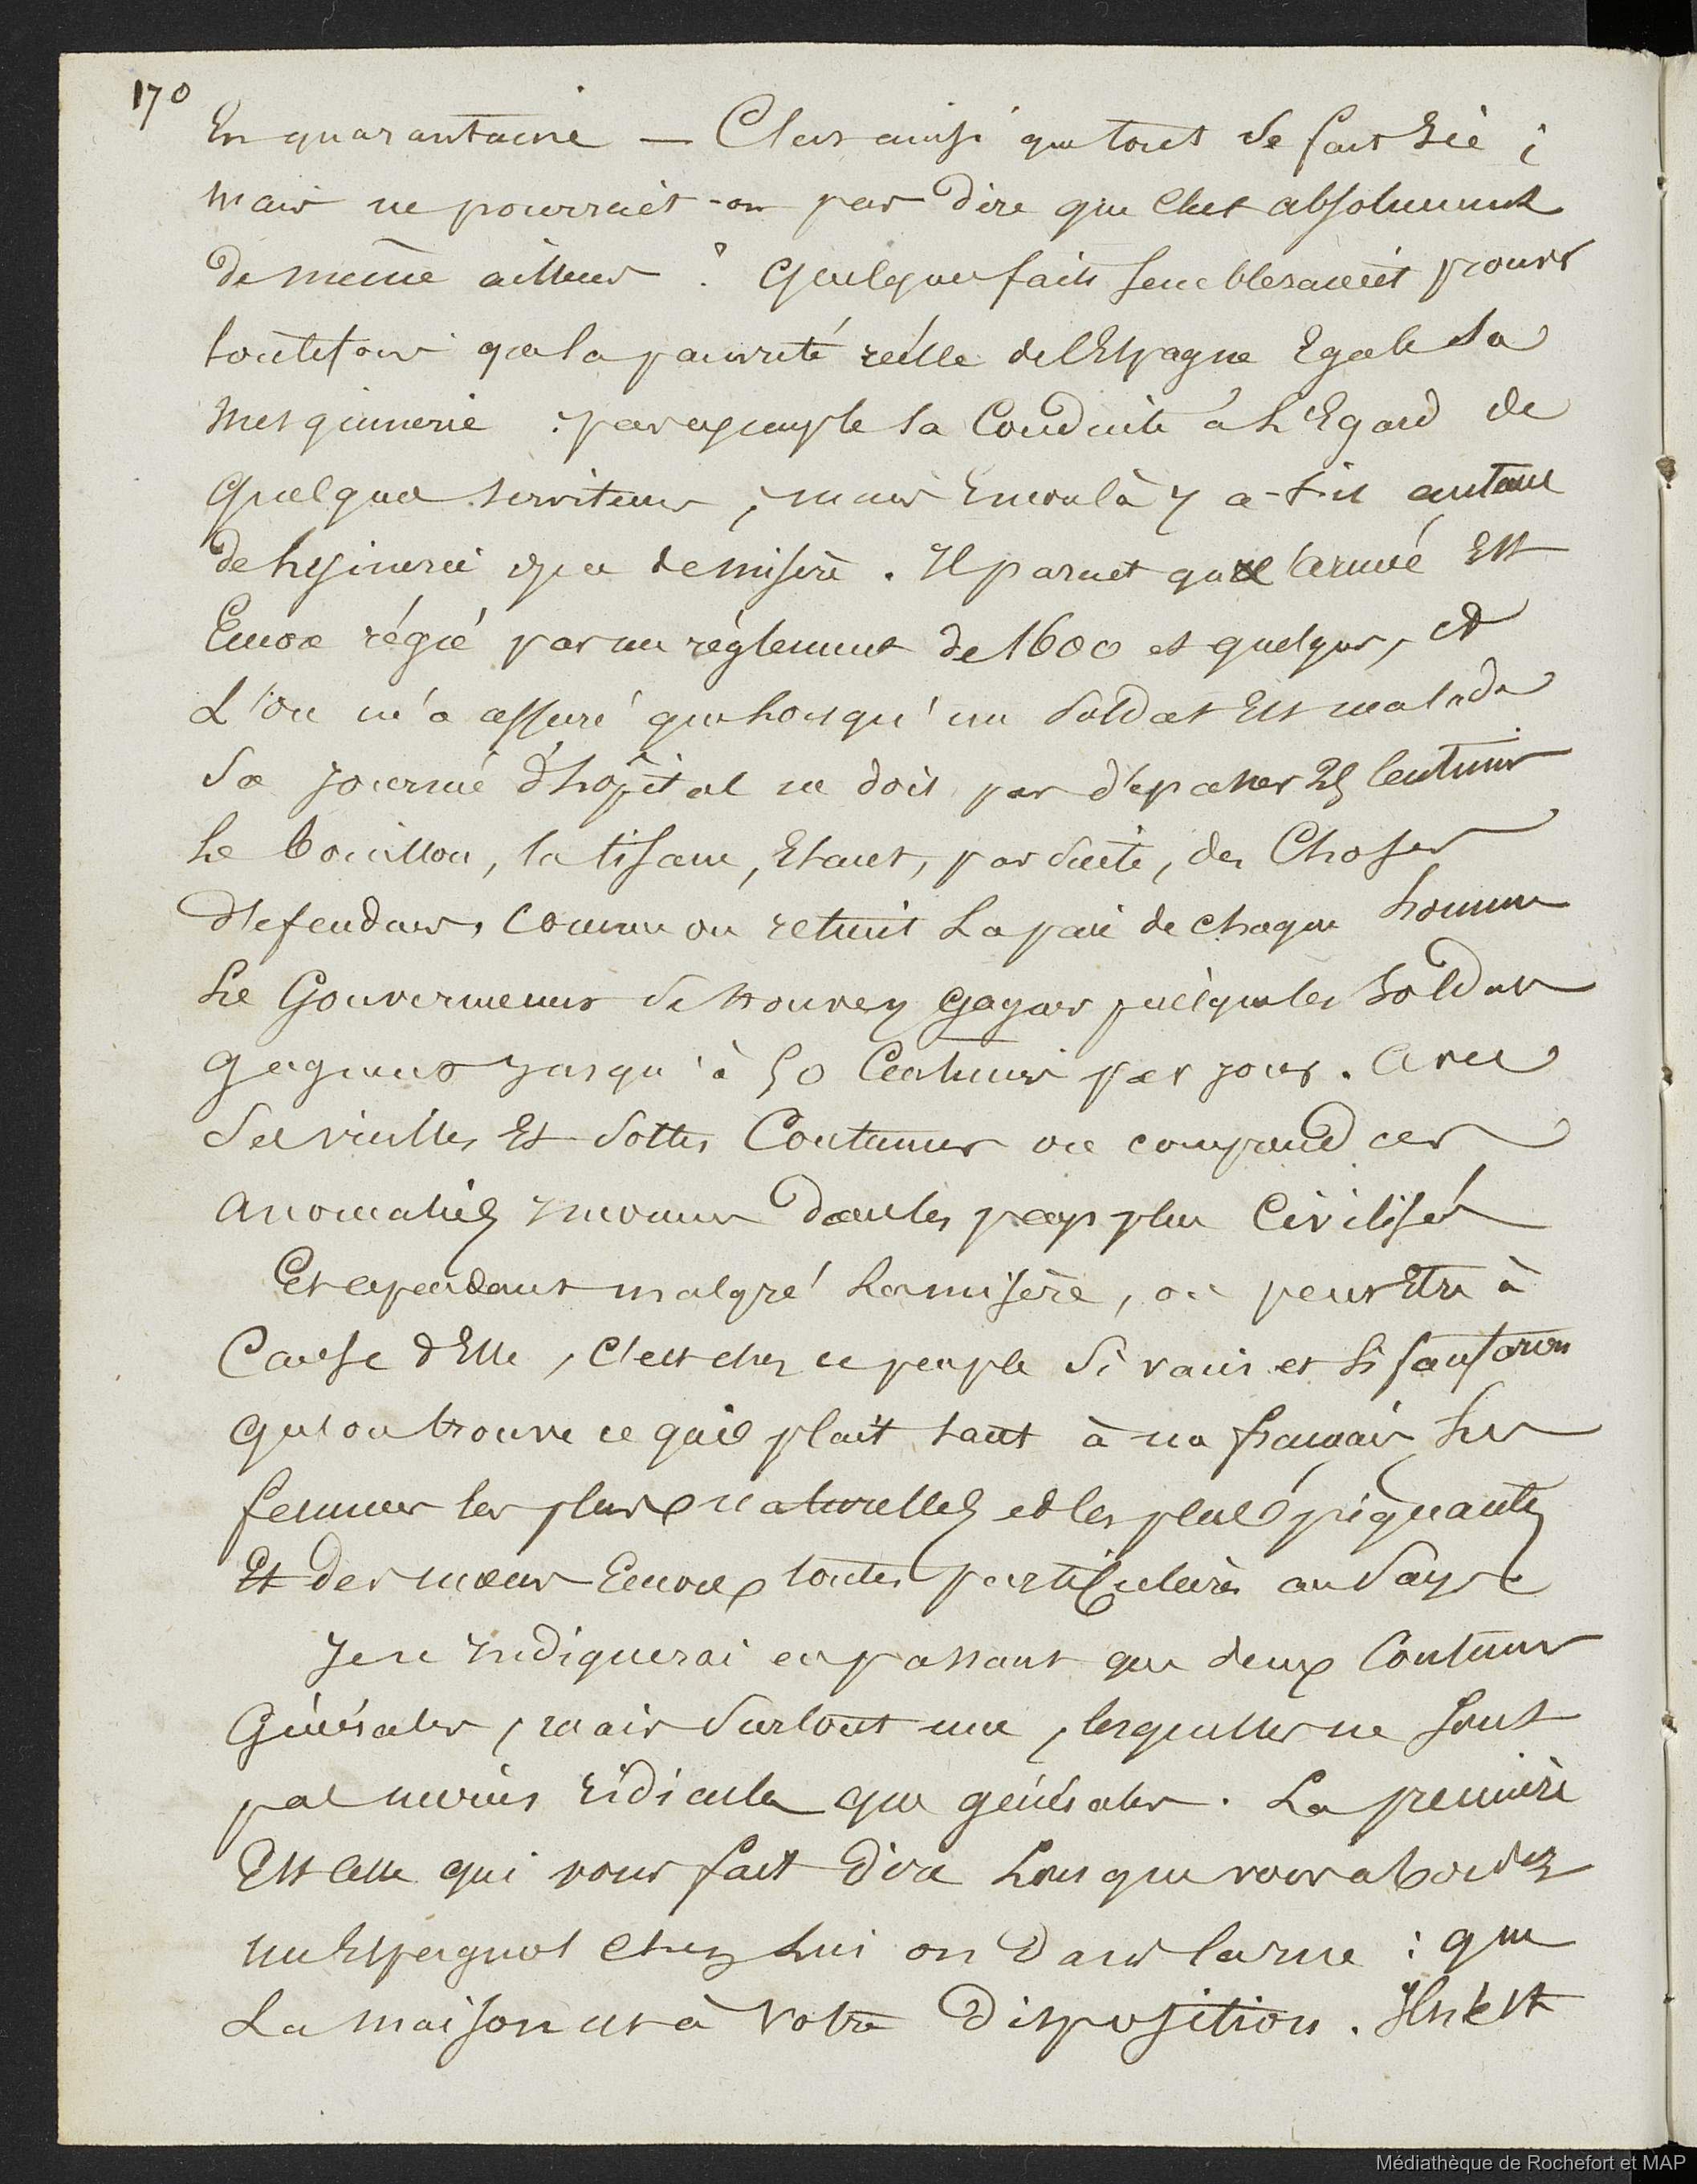 170
En quarantaine — C'est ainsi que tout se fait ici ;
mais ne pourrait-on pas dire que c'est absolument
de même ailleurs ? quelques faits sembleraient prouver
toutefois que la pauvreté réelle de l'Espagne Egale sa
mesquinerie : par exemple sa Conduite à L'Egard de
quelques serviteurs ; mais Encore là y a-t-il autant
de lésinerie que de misère . Il parait que l'armée Est
Encore régie par un réglement de 1600 et quelques, et
L'on m'a assuré que lorsqu'un Soldat Est malade
Sa journée d'hôpital ne doit pas dépasser 25 Centimes
Le bouillon, la tisane, Etant, par suite, des Choses
défendues, Comme on retient La paie de chaque homme
Le Gouvernement se trouve y gagner puisque les Soldats
gagnent jusqu'à 50 Centimes par jour . avec
Ses vieilles Et sottes Coutumes on comprend ces
anomalies inconnues dans les pays plus Civilisés
Et cependant malgré La misère, ou peut Etre à
Cause d'Elle, c'est chez ce peuple si vain et si fanfaron
qu'on trouve ce qui plait tant à un français Les
femmes les plus naturelles et les plus piquantes
Et des mœurs Encore toutes particulières au Pays.
Je n'indiquerai en passant que deux Coutumes
Générales, mais surtout une, lesquelles ne sont
pas moins ridicules que générales . La première
Est celle qui vous fait dire Lorsque vous abordez
un Espagnol chez Lui ou dans la rue : que
La maison est à votre Disposition . Il n'est
Médiathèque de Rochefort et MAP